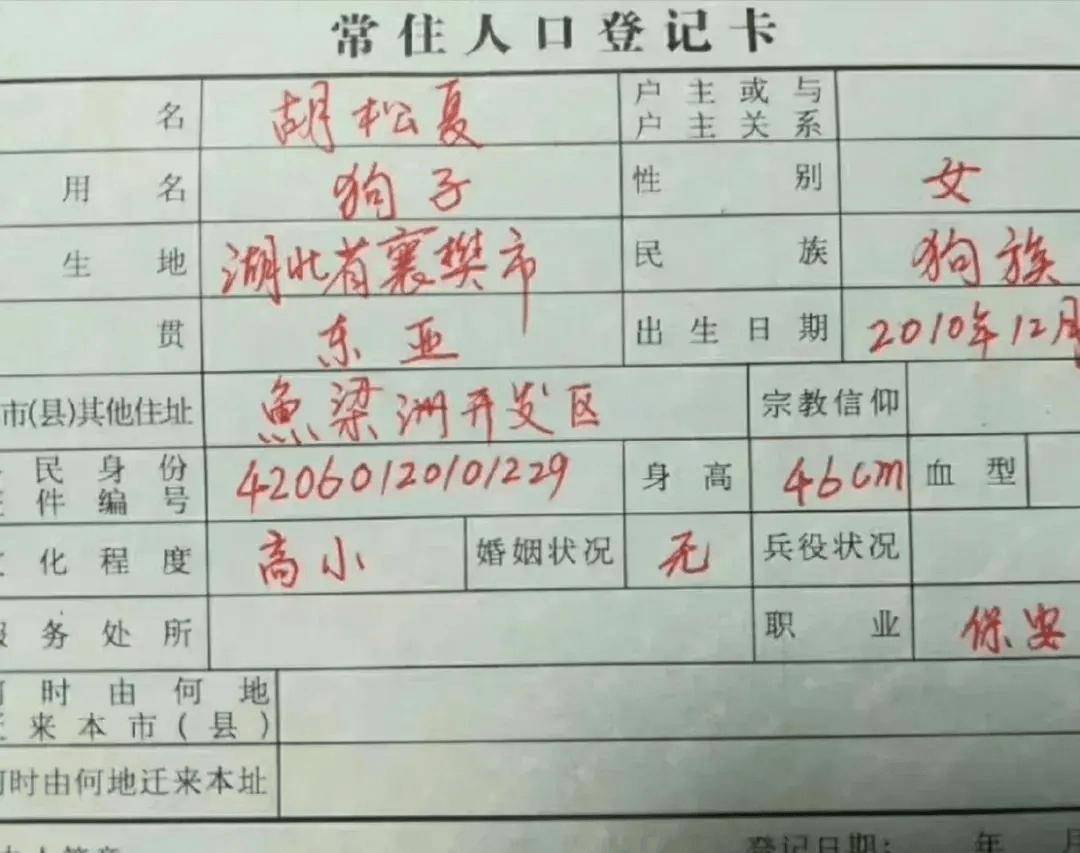 常住人口登记卡
名 胡松夏 户主或与
户主关系
用名 狗子 性别 女
生地 湖北省襄樊市 民族 狗族
贯 东亚 出生日期 2010年12月
市(县)其他住址 魚梁洲开发区 宗教信仰
民身份
件编号 42060120101229 身高 46cm 血型
化程度 高小 婚姻状况 无 兵役状况
服务处所 职业 保安
何时由何地
迁来本市(县)
何时由何地迁来本址
登记日期: 年 月